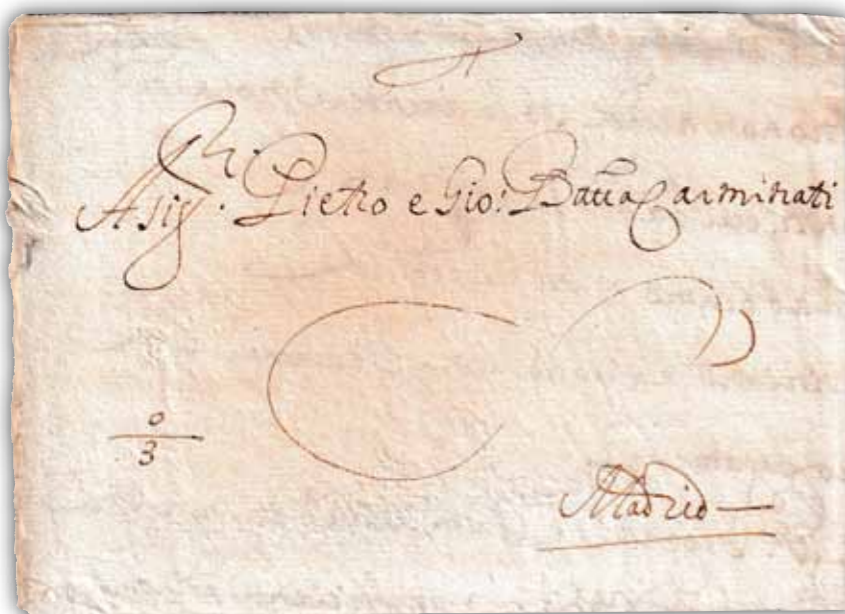 A sig.ri Pietro e Gio: Batta Carminati
0
3
Madrid